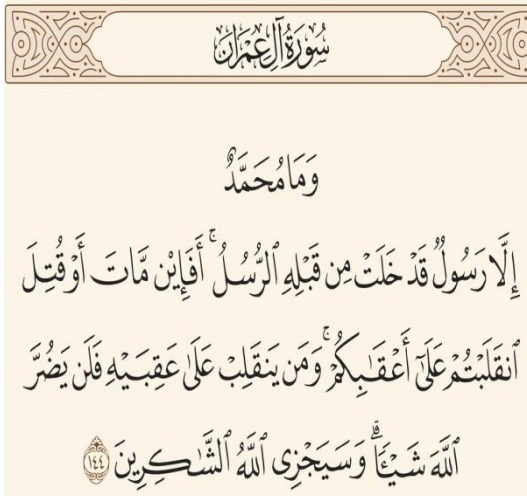 سُورَةُ آلِ عِمْرَانَ
وَمَا مُحَمَّدٌ
إِلَّا رَسُولٌ قَدْ خَلَتْ مِن قَبْلِهِ ٱلرُّسُلُ ۚ أَفَإِي۟ن مَّاتَ أَوْ قُتِلَ
ٱنقَلَبْتُمْ عَلَىٰٓ أَعْقَـٰبِكُمْ ۚ وَمَن يَنقَلِبْ عَلَىٰ عَقِبَيْهِ فَلَن يَضُرَّ
ٱللَّهَ شَيْـًٔا ۗ وَسَيَجْزِى ٱللَّهُ ٱلشَّـٰكِرِينَ ١٤٤